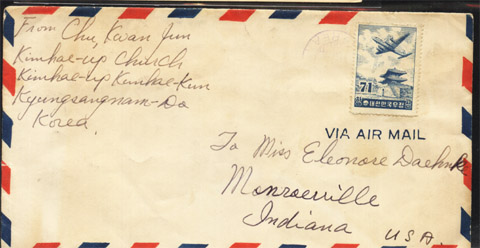 From Chu, Kwan Jun
Kimhae-up Church
Kimhae-up Kimhae-Kun
Kyungsangnam-Do
Korea.
71
대한민국우표
VIA AIR MAIL
To Miss Eleonose Daehnke
Monroeville
Indiana
U.S.A.